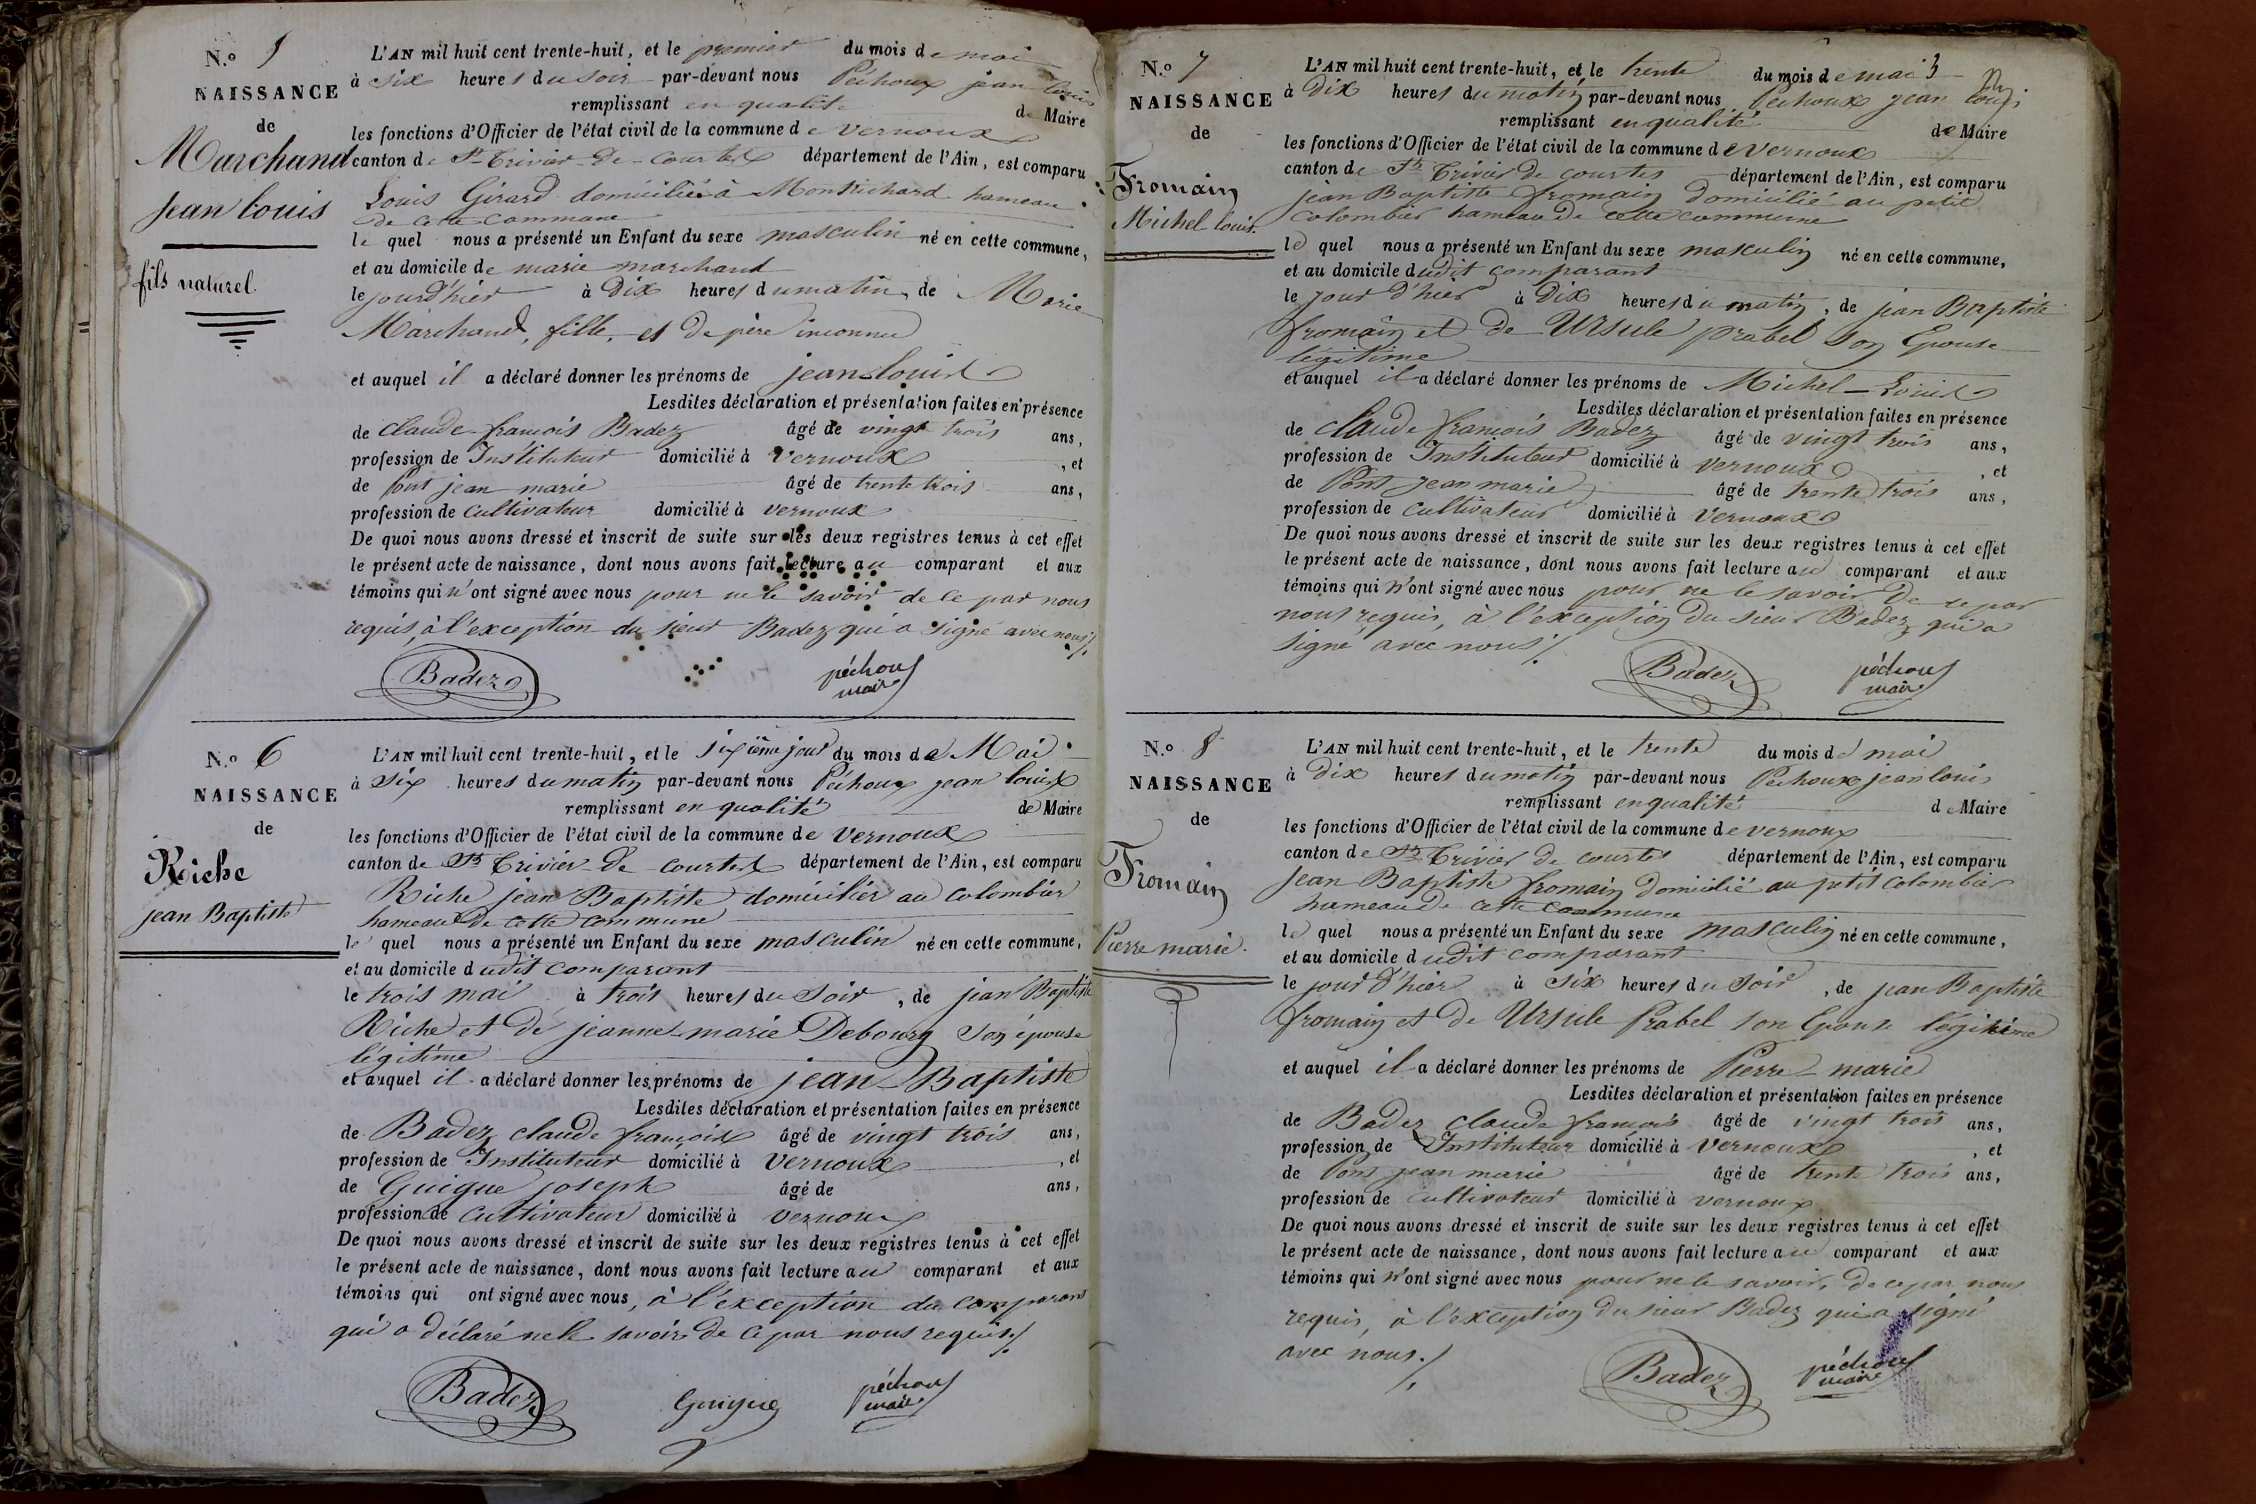 N.o 5
NAISSANCE
de
Marchand
jean louis
fils naturel.
L'AN mil huit cent trente-huit, et le premier du mois de mai
à six heures du soir par-devant nous Péchoux jean louis
remplissant en qualité de Maire
les fonctions d'Officier de l'état civil de la commune de vernoux
canton de St Trivier de courtes département de l'Ain, est comparu
Louis Girard domicilié à Montrichard hameau
de cette commune
le quel nous a présenté un Enfant du sexe masculin né en cette commune,
et au domicile de marie marchand
le jourd'hier à Dix heures du matin, de Marie
Marchand, fille, et de père inconnu
et auquel il a déclaré donner les prénoms de jean louis
Lesdites déclaration et présentation faites en présence
de claude françois Badez âgé de vingt trois ans,
profession de Instituteur domicilié à vernoux, et
de Pont jean marie âgé de trente trois ans,
profession de cultivateur domicilié à vernoux
De quoi nous avons dressé et inscrit de suite sur les deux registres tenus à cet effet
le présent acte de naissance, dont nous avons fait lecture au comparant et aux
témoins qui n'ont signé avec nous pour ne le savoir de ce par nous
requis, à l'exception du sieur Badez qui a signé avec nous ./.
Badez péchoux
maire
N.o 6
NAISSANCE
de
Riche
jean Baptiste
L'AN mil huit cent trente-huit, et le sixième jour du mois de Mai
à six heures du matin par-devant nous Péchoux jean louis
remplissant en qualité de Maire
les fonctions d'Officier de l'état civil de la commune de vernoux
canton de St Trivier de courtes département de l'Ain, est comparu
Riche jean Baptiste domicilier au colombier
hameau de cette commune
le quel nous a présenté un Enfant du sexe masculin né en cette commune,
et au domicile dudit comparant
le trois mai à trois heures du soir, de jean Baptiste
Riche et de jeanne marie Debourg son épouse
légitime
et auquel il a déclaré donner les prénoms de jean Baptiste
Lesdites déclaration et présentation faites en présence
de Badez claude françois âgé de vingt trois ans,
profession de Instituteur domicilié à vernoux, et
de Guigue joseph âgé de ans,
profession de cultivateur domicilié à vernoux
De quoi nous avons dressé et inscrit de suite sur les deux registres tenus à cet effet
le présent acte de naissance, dont nous avons fait lecture au comparant et aux
témoins qui ont signé avec nous, à l'exception du comparant
qui a déclaré ne le savoir de ce par nous requis ./.
Badez Guigue péchoux
maire
N.o 7
NAISSANCE
de
Fromain
Michel louis.
L'AN mil huit cent trente-huit, et le trente du mois de mai
à Dix heures du matin par-devant nous Péchoux jean louis
remplissant en qualité de Maire
les fonctions d'Officier de l'état civil de la commune de vernoux
canton de St Trivier de courtes département de l'Ain, est comparu
jean Baptiste fromain domicilié au petit
colombier hameau de cette commune
le quel nous a présenté un Enfant du sexe masculin né en cette commune,
et au domicile dudit comparant
le jour d'hier à Dix heures du matin, de jean Baptiste
fromain et de Ursule prabel son Epouse
légitime
et auquel il a déclaré donner les prénoms de Michel Louis
Lesdites déclaration et présentation faites en présence
de claude françois Badez âgé de vingt trois ans,
profession de Instituteur domicilié à vernoux, et
de Pont jean marie âgé de trente trois ans,
profession de cultivateur domicilié à vernoux
De quoi nous avons dressé et inscrit de suite sur les deux registres tenus à cet effet
le présent acte de naissance, dont nous avons fait lecture au comparant et aux
témoins qui n'ont signé avec nous pour ne le savoir De ce par
nous requis, à l'exception du sieur Badez qui a
signé avec nous ./.
Badez péchoux
maire
N.o 8
NAISSANCE
de
Fromain
Pierre marie.
L'AN mil huit cent trente-huit, et le trente du mois de mai
à dix heures du matin par-devant nous Péchoux jean louis
remplissant en qualité de Maire
les fonctions d'Officier de l'état civil de la commune de vernoux
canton de St Trivier de courtes département de l'Ain, est comparu
Jean Baptiste fromain domicilié au petit colombier
hameau de cette commune
le quel nous a présenté un Enfant du sexe masculin né en cette commune,
et au domicile dudit comparant
le jour d'hier à six heures du soir, de jean Baptiste
fromain et de Ursule Prabel son Epouse légitime
et auquel il a déclaré donner les prénoms de Pierre marie
Lesdites déclaration et présentation faites en présence
de Badez claude françois âgé de vingt trois ans,
profession de Instituteur domicilié à vernoux, et
de Pont jean marie âgé de trente trois ans,
profession de cultivateur domicilié à vernoux
De quoi nous avons dressé et inscrit de suite sur les deux registres tenus à cet effet
le présent acte de naissance, dont nous avons fait lecture au comparant et aux
témoins qui n'ont signé avec nous pour ne le savoir, de ce par nous
requis, à l'exception du sieur Badez qui a signé
avec nous ./.
Badez péchoux
maire